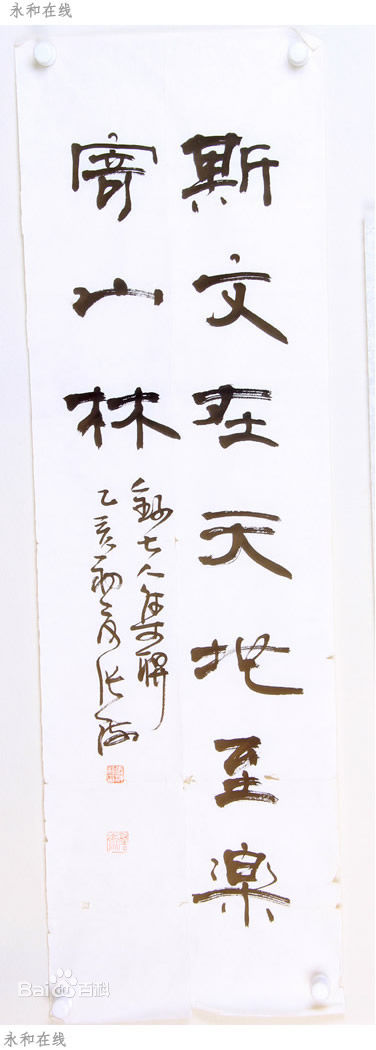 永和在线
斯文在天地至樂
寄山林
錄古人集聯
乙亥初夏
Baidu百科
永和在线